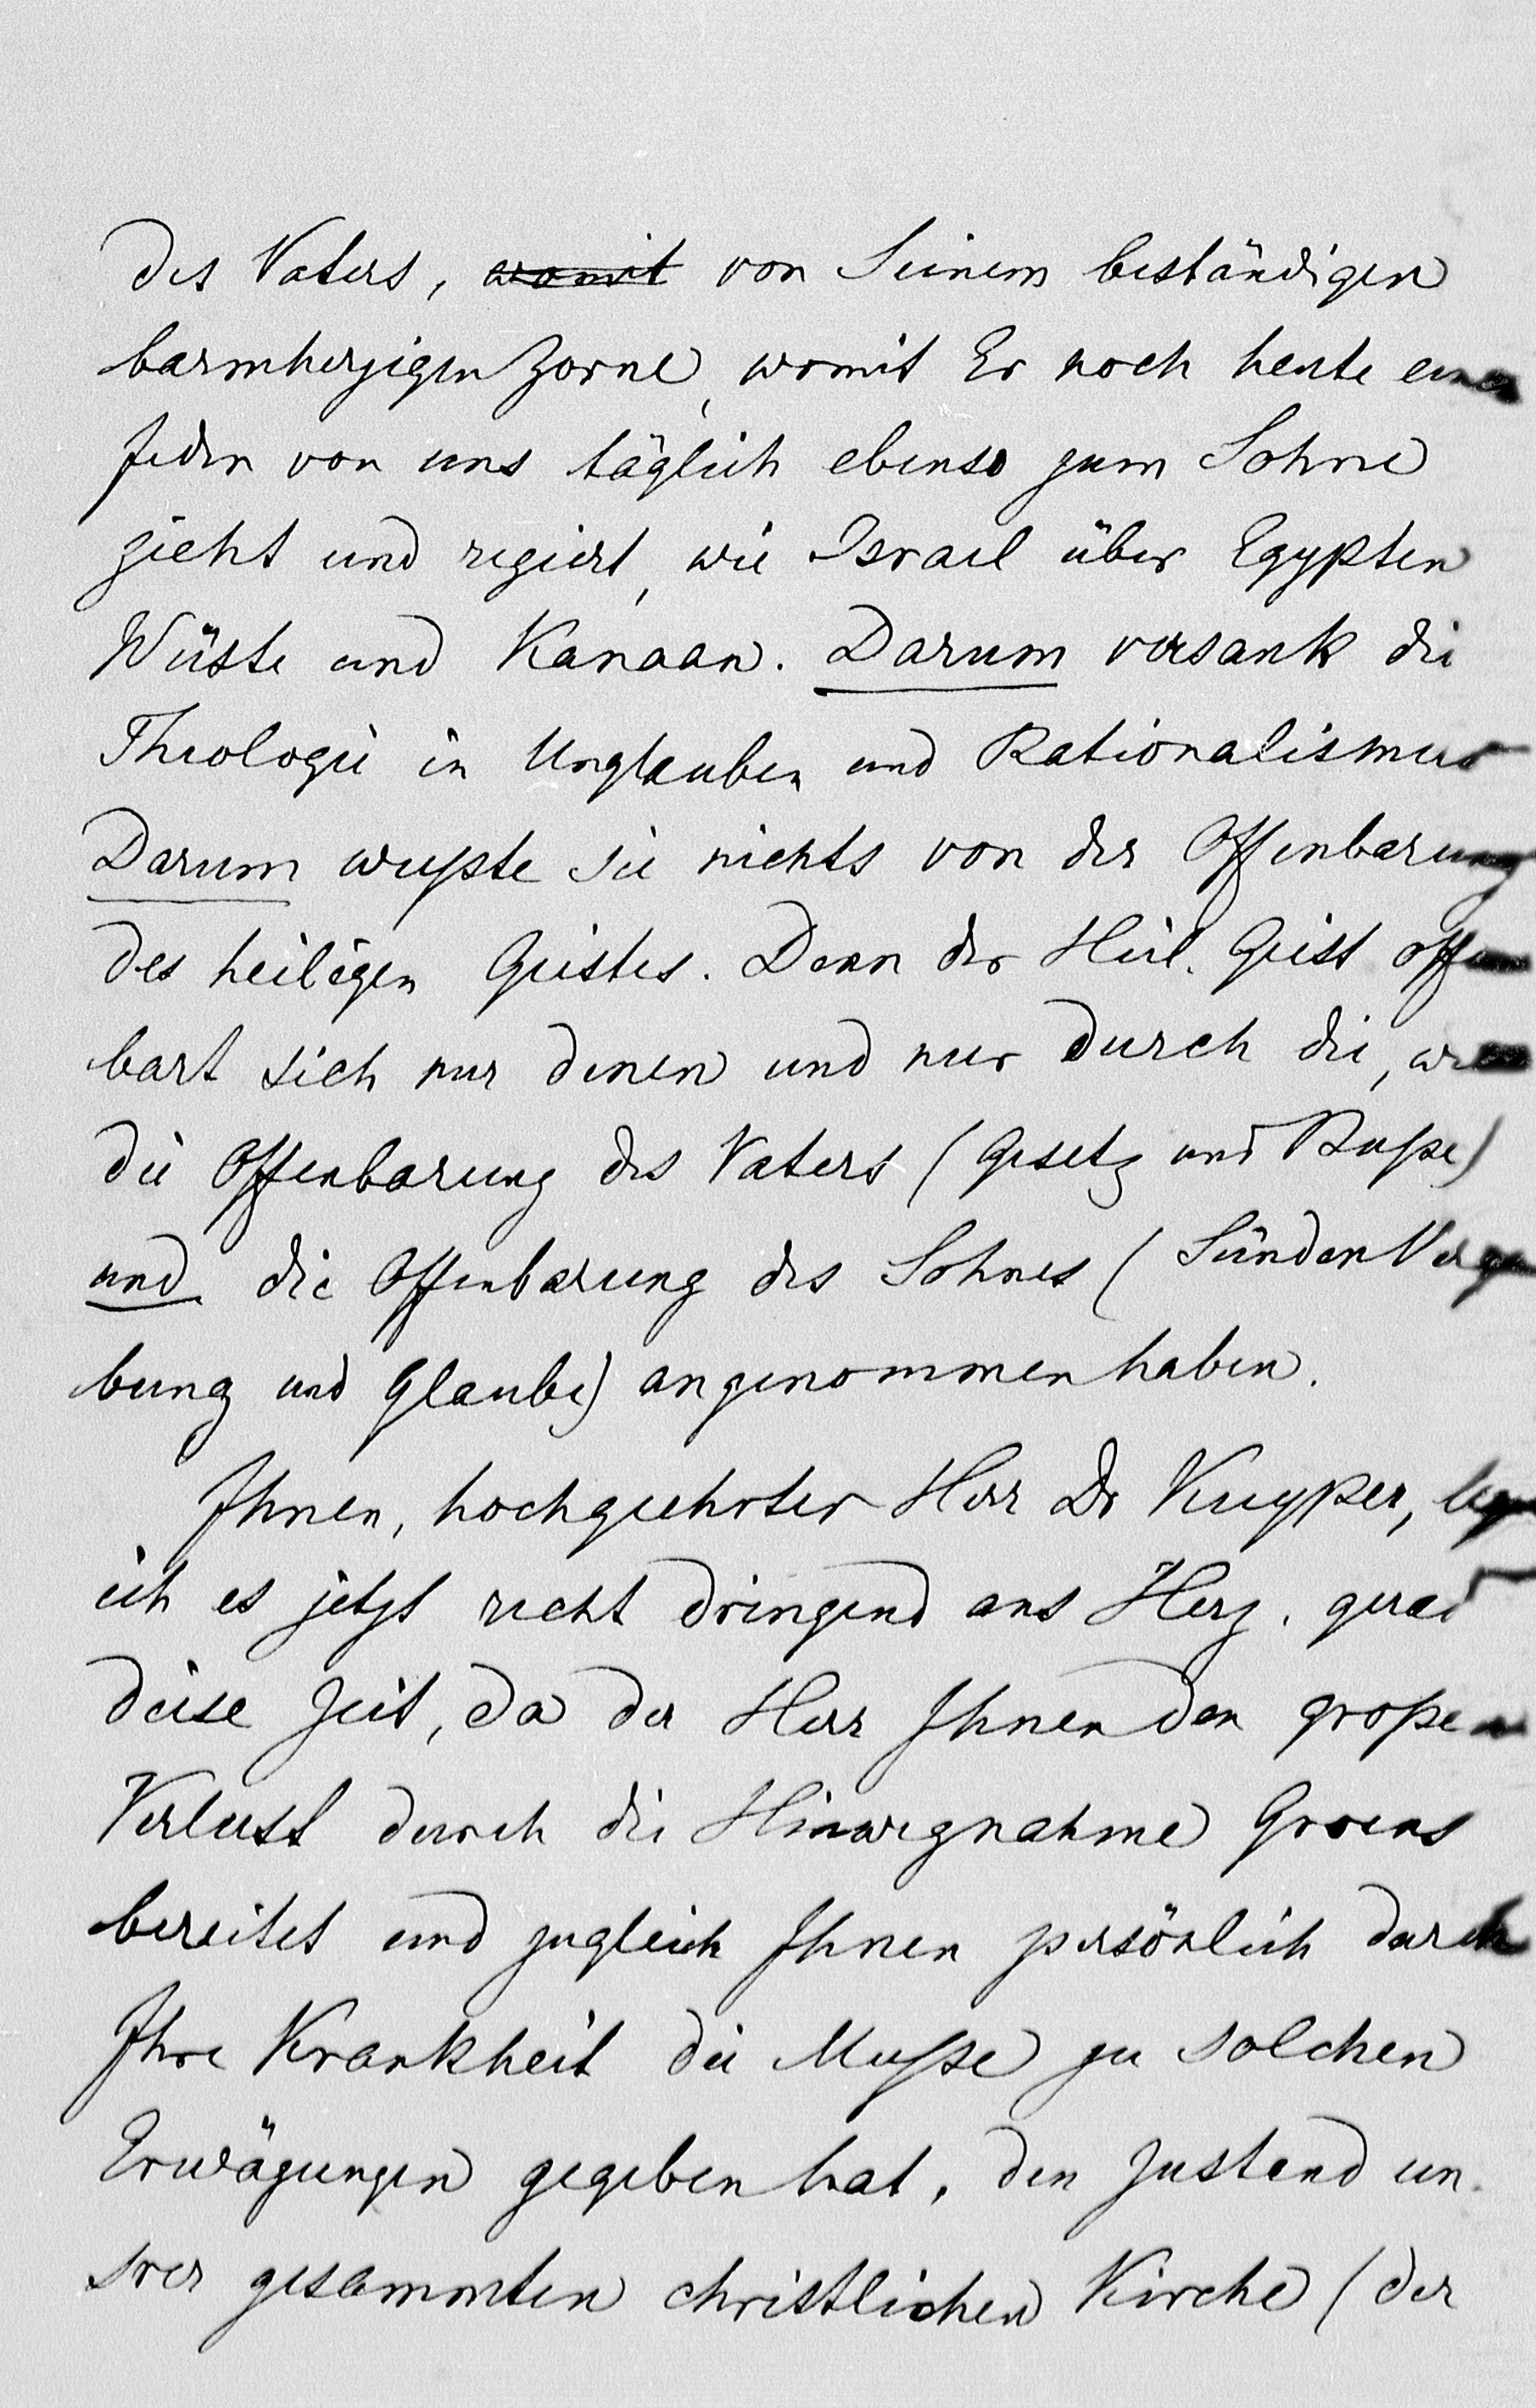 des Vaters, womit von Seinem beständigen
barmherzigen Zorne, womit Er noch heute einen
Jeden von uns täglich ebenso zum Sohne
zieht und regiert, wie Israel über Egypten
Wüste und Kanaan. Darum versank die
Theologie in Unglauben und Rationalismus
Darum wußte sie nichts von der Offenbarung
des heiligen Geistes. Denn der Heil. Geist offen
bart sich nur denen und nur durch die,
die Offenbarung des Vaters (Gesetz und Buße)
und die Offenbarung des Sohnes (Sünden Verge
bung und Glaube) angenommen haben.
Ihnen, hochgeehrter Herr Dr Kuyper, lege
ich es jetzt recht dringend ans Herz, grad
diese Zeit, da der Herr Ihnen den großen
Verlust durch die Hinwegnahme Groens
bereitet und zugleich Ihnen persönlich durch
Ihre Krankheit die Muße zu solchen
Erwägungen gegeben hat, den Zustand un-
srer gesammten christlichen Kirche (der